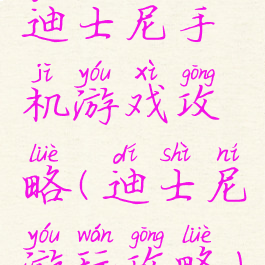 迪士尼手
jī yóu xì gōng
机游戏攻
lüè dí shì ní
略(迪士尼
yóu wán gōng lüè
游玩攻略)